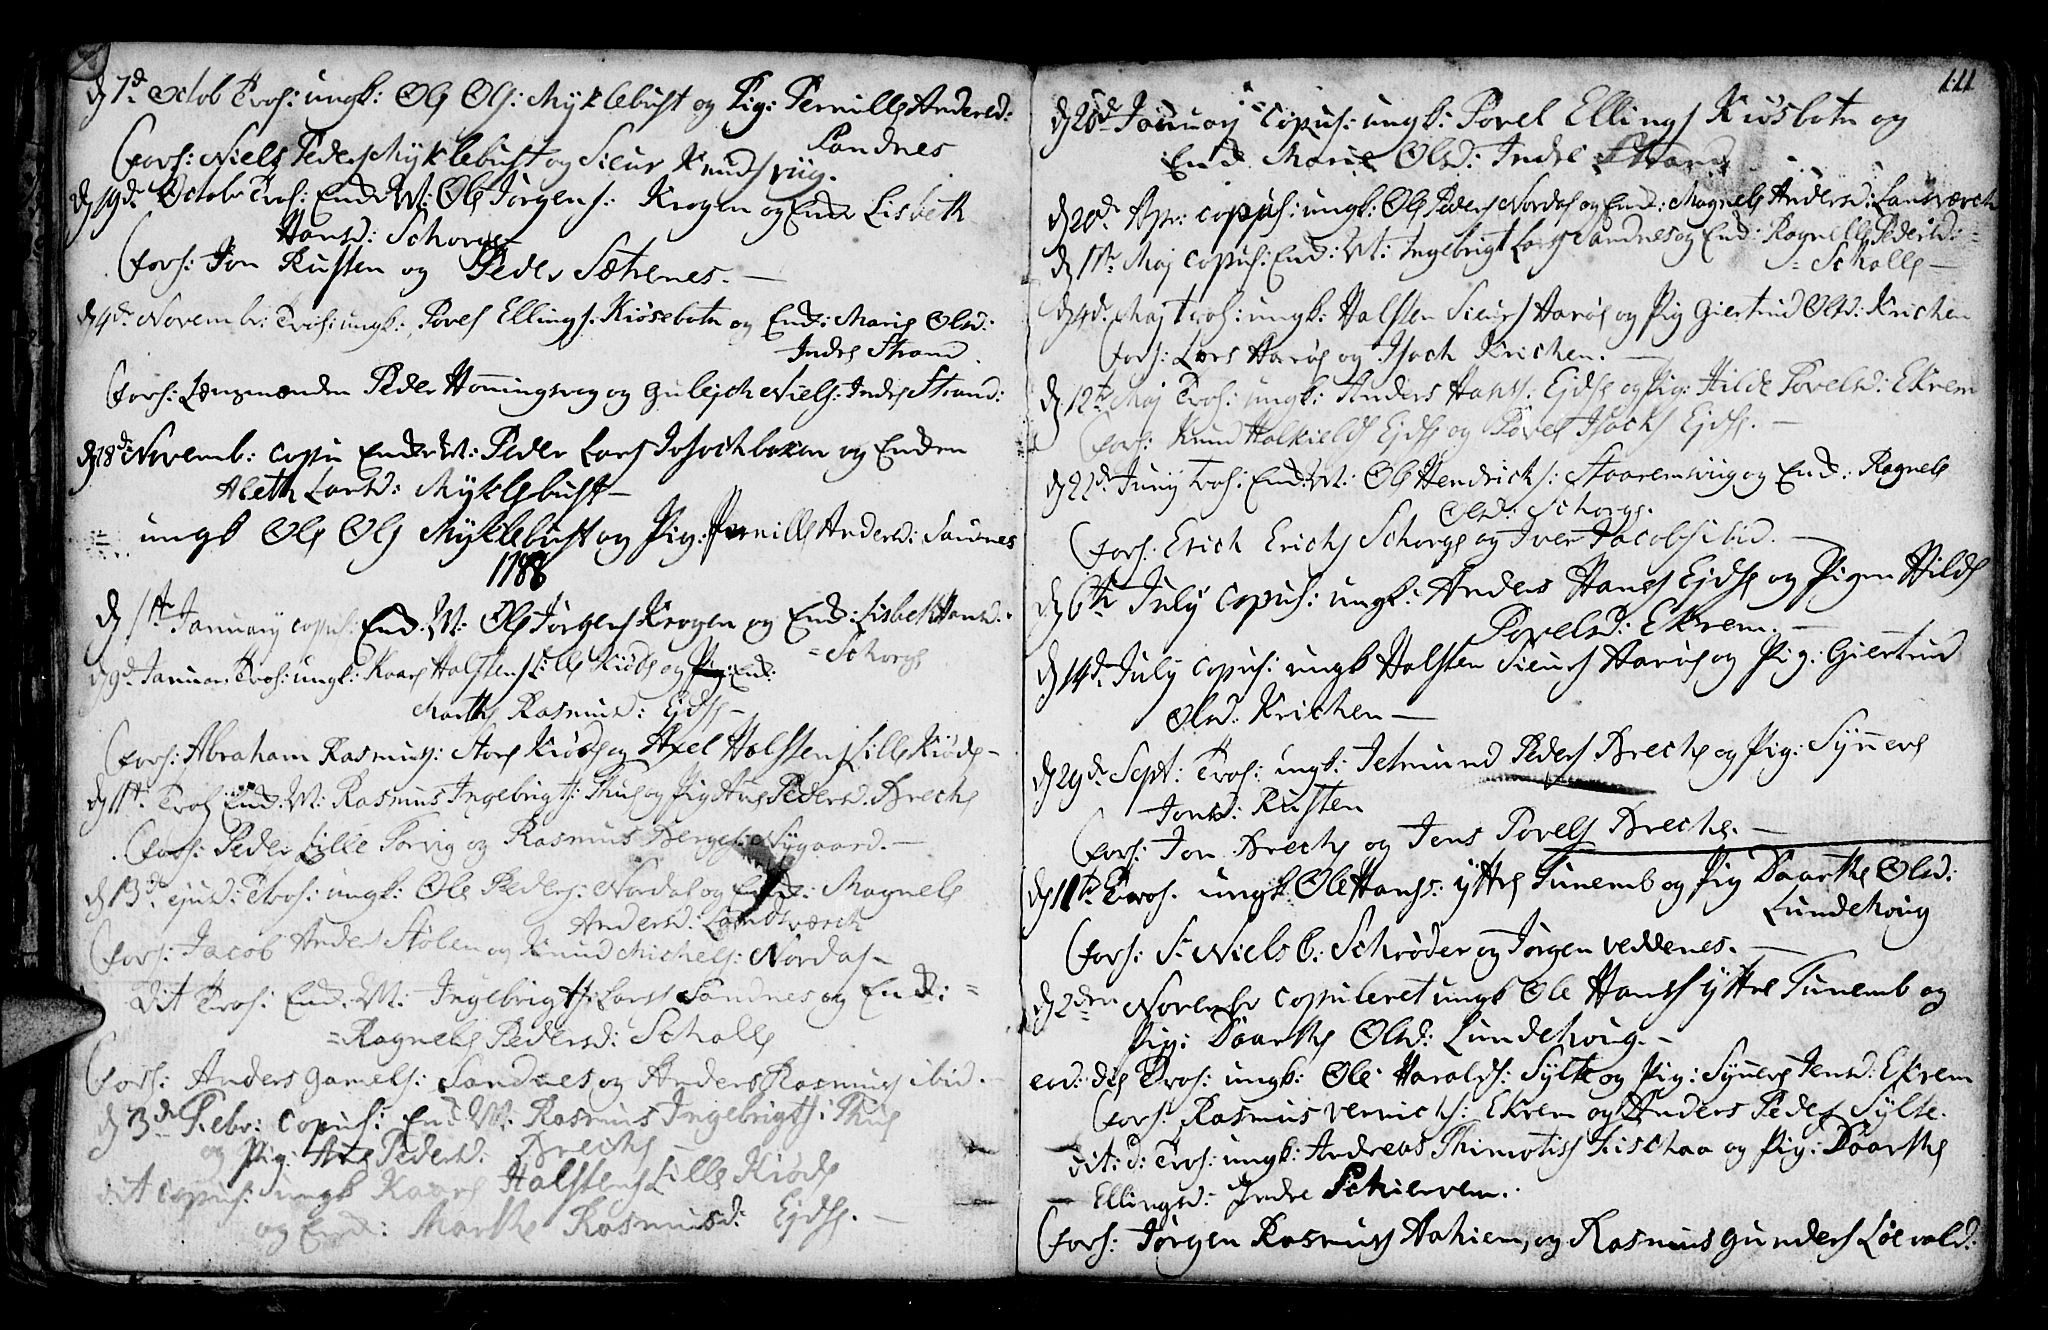 d 7de Octob Trol: ungk: Ole Ols: Myklebust og Pig: Pernille Andersd:
Sandnes
Cavs: Niels Peders Myklebust og Siur Knuds viig.
d 19de Octobr Trol: Enk M: Ole Jørgens: Krogen og Enke Lisbeth
Hansd: Schorge
Cavs: Jon Rusten og Peder Sætrenes. —
d 4de Novembr: Trol: ungk: Povel Ellings: Kiøsebotn og Enk: Marie Olsd:
Indre Strand.
Cavs: Lænsmanden Peder Honningsvog og Gulejch Niels: Indre Strand:
d 18de Novemb: Copu Enke M: Peder Lars Isachbakken og Enken
Aleth Larsd: Myklebust —
ungk Ole Ols Myklebust og Pig: Pernille Andersd: Sandnes
1788
d 1te January copul: Enk. M: Ole Jørgens Krogen og Enk: Lisbeth Hansd:
= Schorge
d 9de Januar: Trol: ungk: Kaare Halstens Lille Kiøde og Enk:
Marthe Rasmusd: Ejdse —
Cavs: Abraham Rasmuss: Store Kiøde og Axel Halstens Lille Kiøde —
d 11te Trol Enk. M: Rasmus Ingebrigts: Thue og Pig Ane Pedersd. Breche
Cavs: Peder Lille Torvig og Rasmus Berges: Nygaard. —
d 13de ejusd: Trol: ungk: Ole Peders: Nordal og Enk: Magnele
Andersd: Landsværch
Cavs: Jacob Anders Stølen og Knud Michels: Nordal —
Dit Trol: Enk. M: Ingebrigt Lars Sandnes og Enk: =
= Ragnele Pedersd: Scholle
Cavs: Anders Gamels: Sandnes og Anders Rasmus ibid. —
d 3de Febr: Copul: Enk M: Rasmus Ingebrigts: Thue
og Pig: Ane Pedersd: Breche —
dit copul: ungk Kaare Halstens Lille Kiøde
og Enk: Marthe Rasmusd: Ejdse. —
111
d 20de January Copul: ungk: Povel Ellings Kiøsbotn og
Enk Marie Olsd: Indre Strand
d 20de Apr: Copul: ungk: Ole Peders Nordal og Enk: Magnele Andersd: Landsværch
d 1te Maj Copul: Enk: M: Ingebrigt Lars Sandnes og Enk: Ragnele Pedersd: =
= Scholle —
d 4de Maj Trol: ungk: Halsten Siurs Harøe og Pig Giertrud Olsd: Krichen
Cavs: Lars Harøe og Isach Krichen. —
d 12te Maj Trol: ungk: Anders Hans: Ejdse og Pig: Hilde Povelsd: Ekrem
Cavs: Knud Halkields Ejdse og Povel Isachs Ejdse. —
d 22de Juny Trol: Enk: M: Ole Hendrichs: Staaremviig og Enk: Ragnele
Olsd: Schorge.
Cavs: Erich Erichs Schorge og Iver Jacobs ibid. —
d 6te July Copul: ungk: Anders Hans Ejdse og Pigen Hilde
Povelsd: Ekrem. —
d 14de July Copul: ungk Halsten Siurs Harøe og Pig: Giertrud
Olsd: Krichen —
d 29de Sept: Trol: ungk: Jetmund Peders Breche og Pig: Synneve
Jonsd: Rusten
Cavs: Jon Breche og Jens Povels Breche. —
d 11te Trol. ungk: Ole Hanss: yttre Tunemb og Pig Daarthe Olsd:
Lundehoug
Cavs: Sr Niels B: Schrøder og Jørgen Veddenes. —
d 2den Novembr Copuleret ungk Ole Hanss yttre Tunemb og
Pig: Daarthe Olsd: Lundehoug. —
eod: die Trol: ungk: Ole Haralds: Sylte og Pig: Synneve Jensd: Ekrem
Cavs: Rasmus Vernichs: Ekrem og Anders Peders Sylte.
— dit: d: Trol: ungk: Andreas Thimotiss Fischaa og Pig: Daarthe
— Ellingsd: Indre Schierven.
Cavs: Jørgen Rasmuss Aahiem, og Rasmus Gunders Løevold: